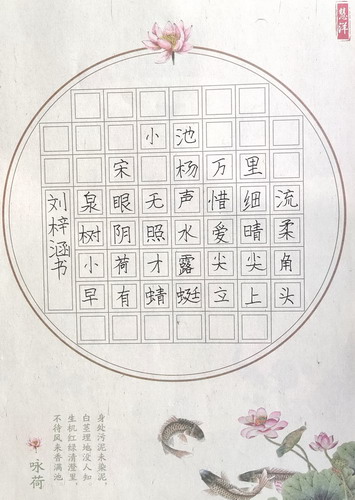 小池
宋 杨万里
泉眼无声惜细流
树阴照水爱晴柔
小荷才露尖尖角
早有蜻蜓立上头
刘梓涵书
慧洋
身处污泥未染泥，
白茎埋地没人知
生机红绿清澄里，
不待风来香满池
咏荷